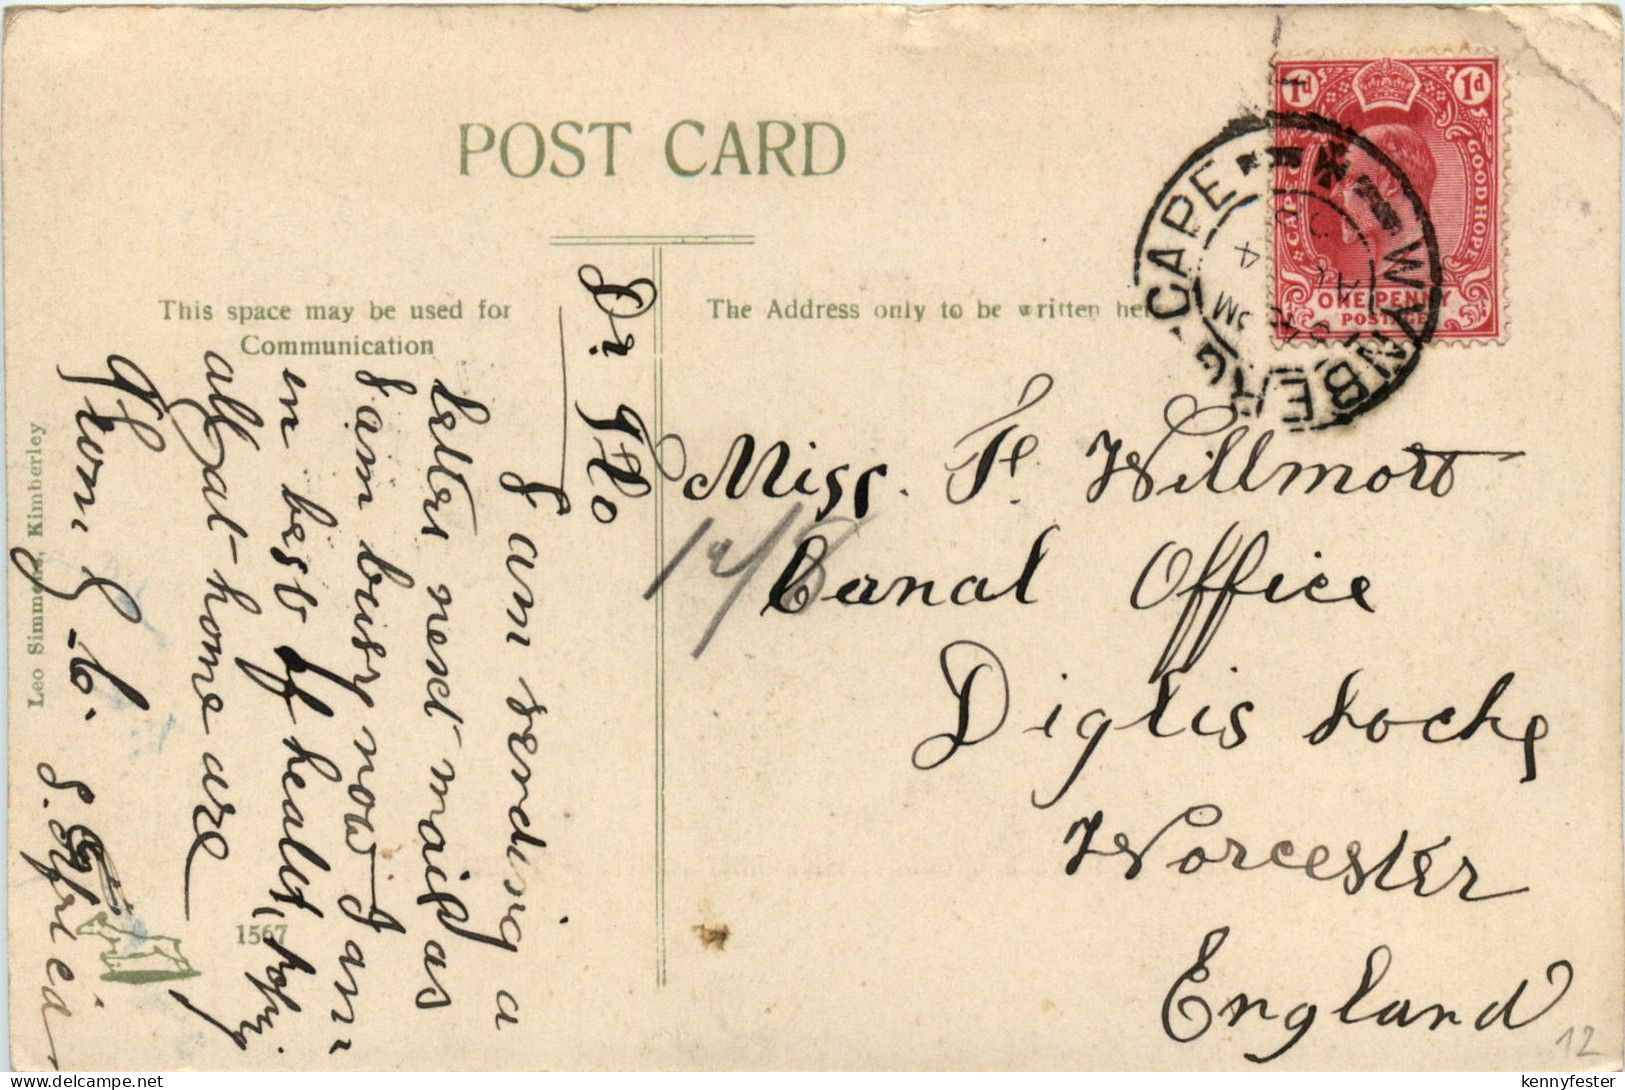 POST CARD
This space may be used for
Communication
The Address only to be written
Dr. Flo
I am sending a
letter next mail as
I am busy now I am
in best of health, hoping
all at home are
From G. C.
S. Africa
Miss. F. Willmott
Canal Office
Diglis Locks
Worcester
England
12/8
12
1d
1d
CAPE OF GOOD HOPE
ONE PENNY
POSTAGE
WYNBERG · CAPE
Leo Simmons, Kimberley
1567
kennyfester